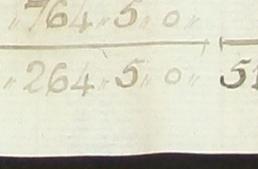 764 „ 5 „ 0 „
„ 264 „ 5 „ 0 „ 51